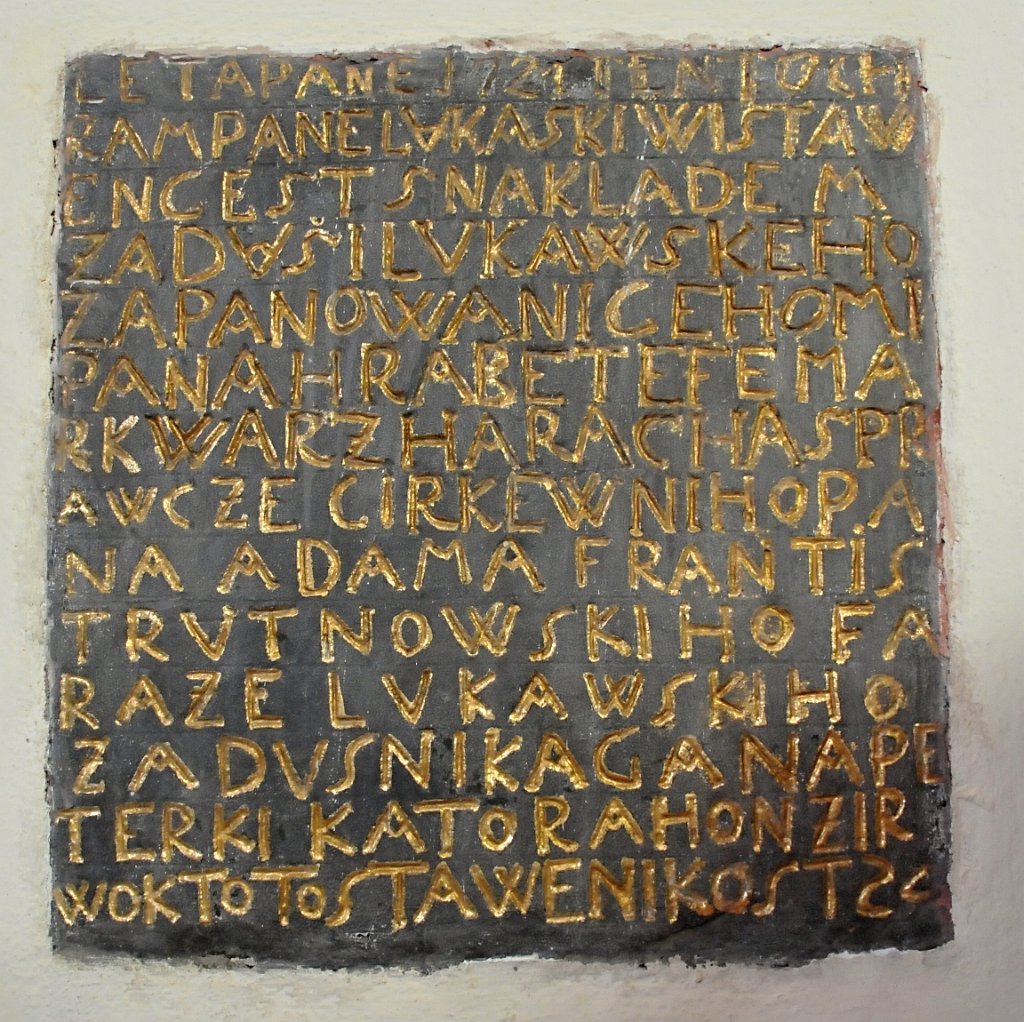 LETAPANE 1721 TENTOCH
RAMPANELVKASKIWISTAW
ENGEST SNAKLADEM
ZADVŠILVKAWSKEHO
ZAPANOWANIGEHOMI
PANAHRABETEFEMA
RKWARZHARACHASPR
AWCZE CIRKEWNIHOPA
NA ADAMA FRANTIS
TRVTNOWSKIHO FA
RAZE LVKAWSKIHO
ZADVSNIKAGANAPE
TERKI KATORAHONZIR
WOKTOTOSTAWENIKOST